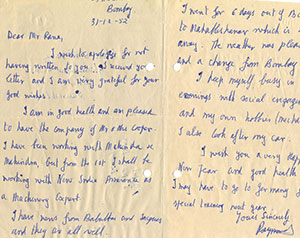 Bombay
31-12-52
Dear Mr Rana,
I wish to apologise for not
having written to you. I received your
letter and I am very grateful for your
good wishes.
I am in good health and am pleased
to have the company of Mr & Mrs
I have been working with Mahindra &
Mahindra, but from the 1st I shall be
working with New India Assurance as
a Machinery Expert.
I have news from
and they are all well.
I went for 6 days out of
to Mahableshwar which is
away. The weather was
and a change from Bombay
I keep myself busy in
evenings with social engage
and my own hobbies
I also look after my car.
I wish you a very Happy
New Year and good health
I may have to go to Germany
special training next year
Yours Sincerely